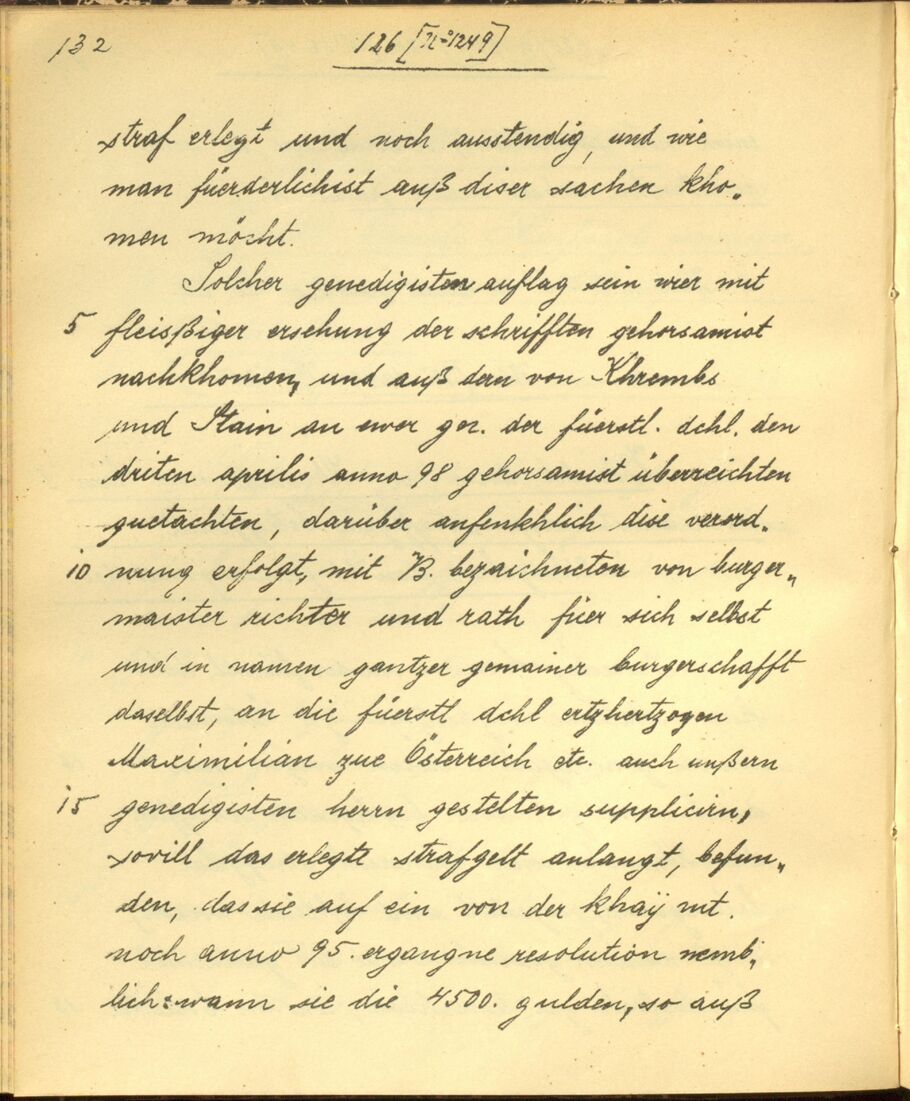 132
126 [N° 1249]
straf erlegt und noch ausstendig, und wie
man füerderlichist auß diser sachen kho„
men möcht.
Solcher genedigisten auflag sein wier mit
5 fleisßiger ersehung der schrifften gehorsamist
nachkhomen, und auß dem von Khrembs
und Stain an ewer gn. der füerstl. dchl. den
driten aprilis anno 98 gehorsamist überreichten
guetachten, darüber anfenkhlich dise verord„
10 nung erfolgt, mit B. bezaichneten von burger„
maister richter und rath füer sich selbst
und in namen gantzer gemainer burgerschafft
daselbst, an die füerstl dchl ertzhertzogen
Maximilian zue Österreich etc. auch unßern
15 genedigisten herrn gestelten supplicirn,
sovill das erlegte strafgelt anlangt, befun„
den, das sie auf ein von der khaÿ mt.
noch anno 95. ergangne resolution nemb„
lich: wann sie die 4500. gulden, so auß